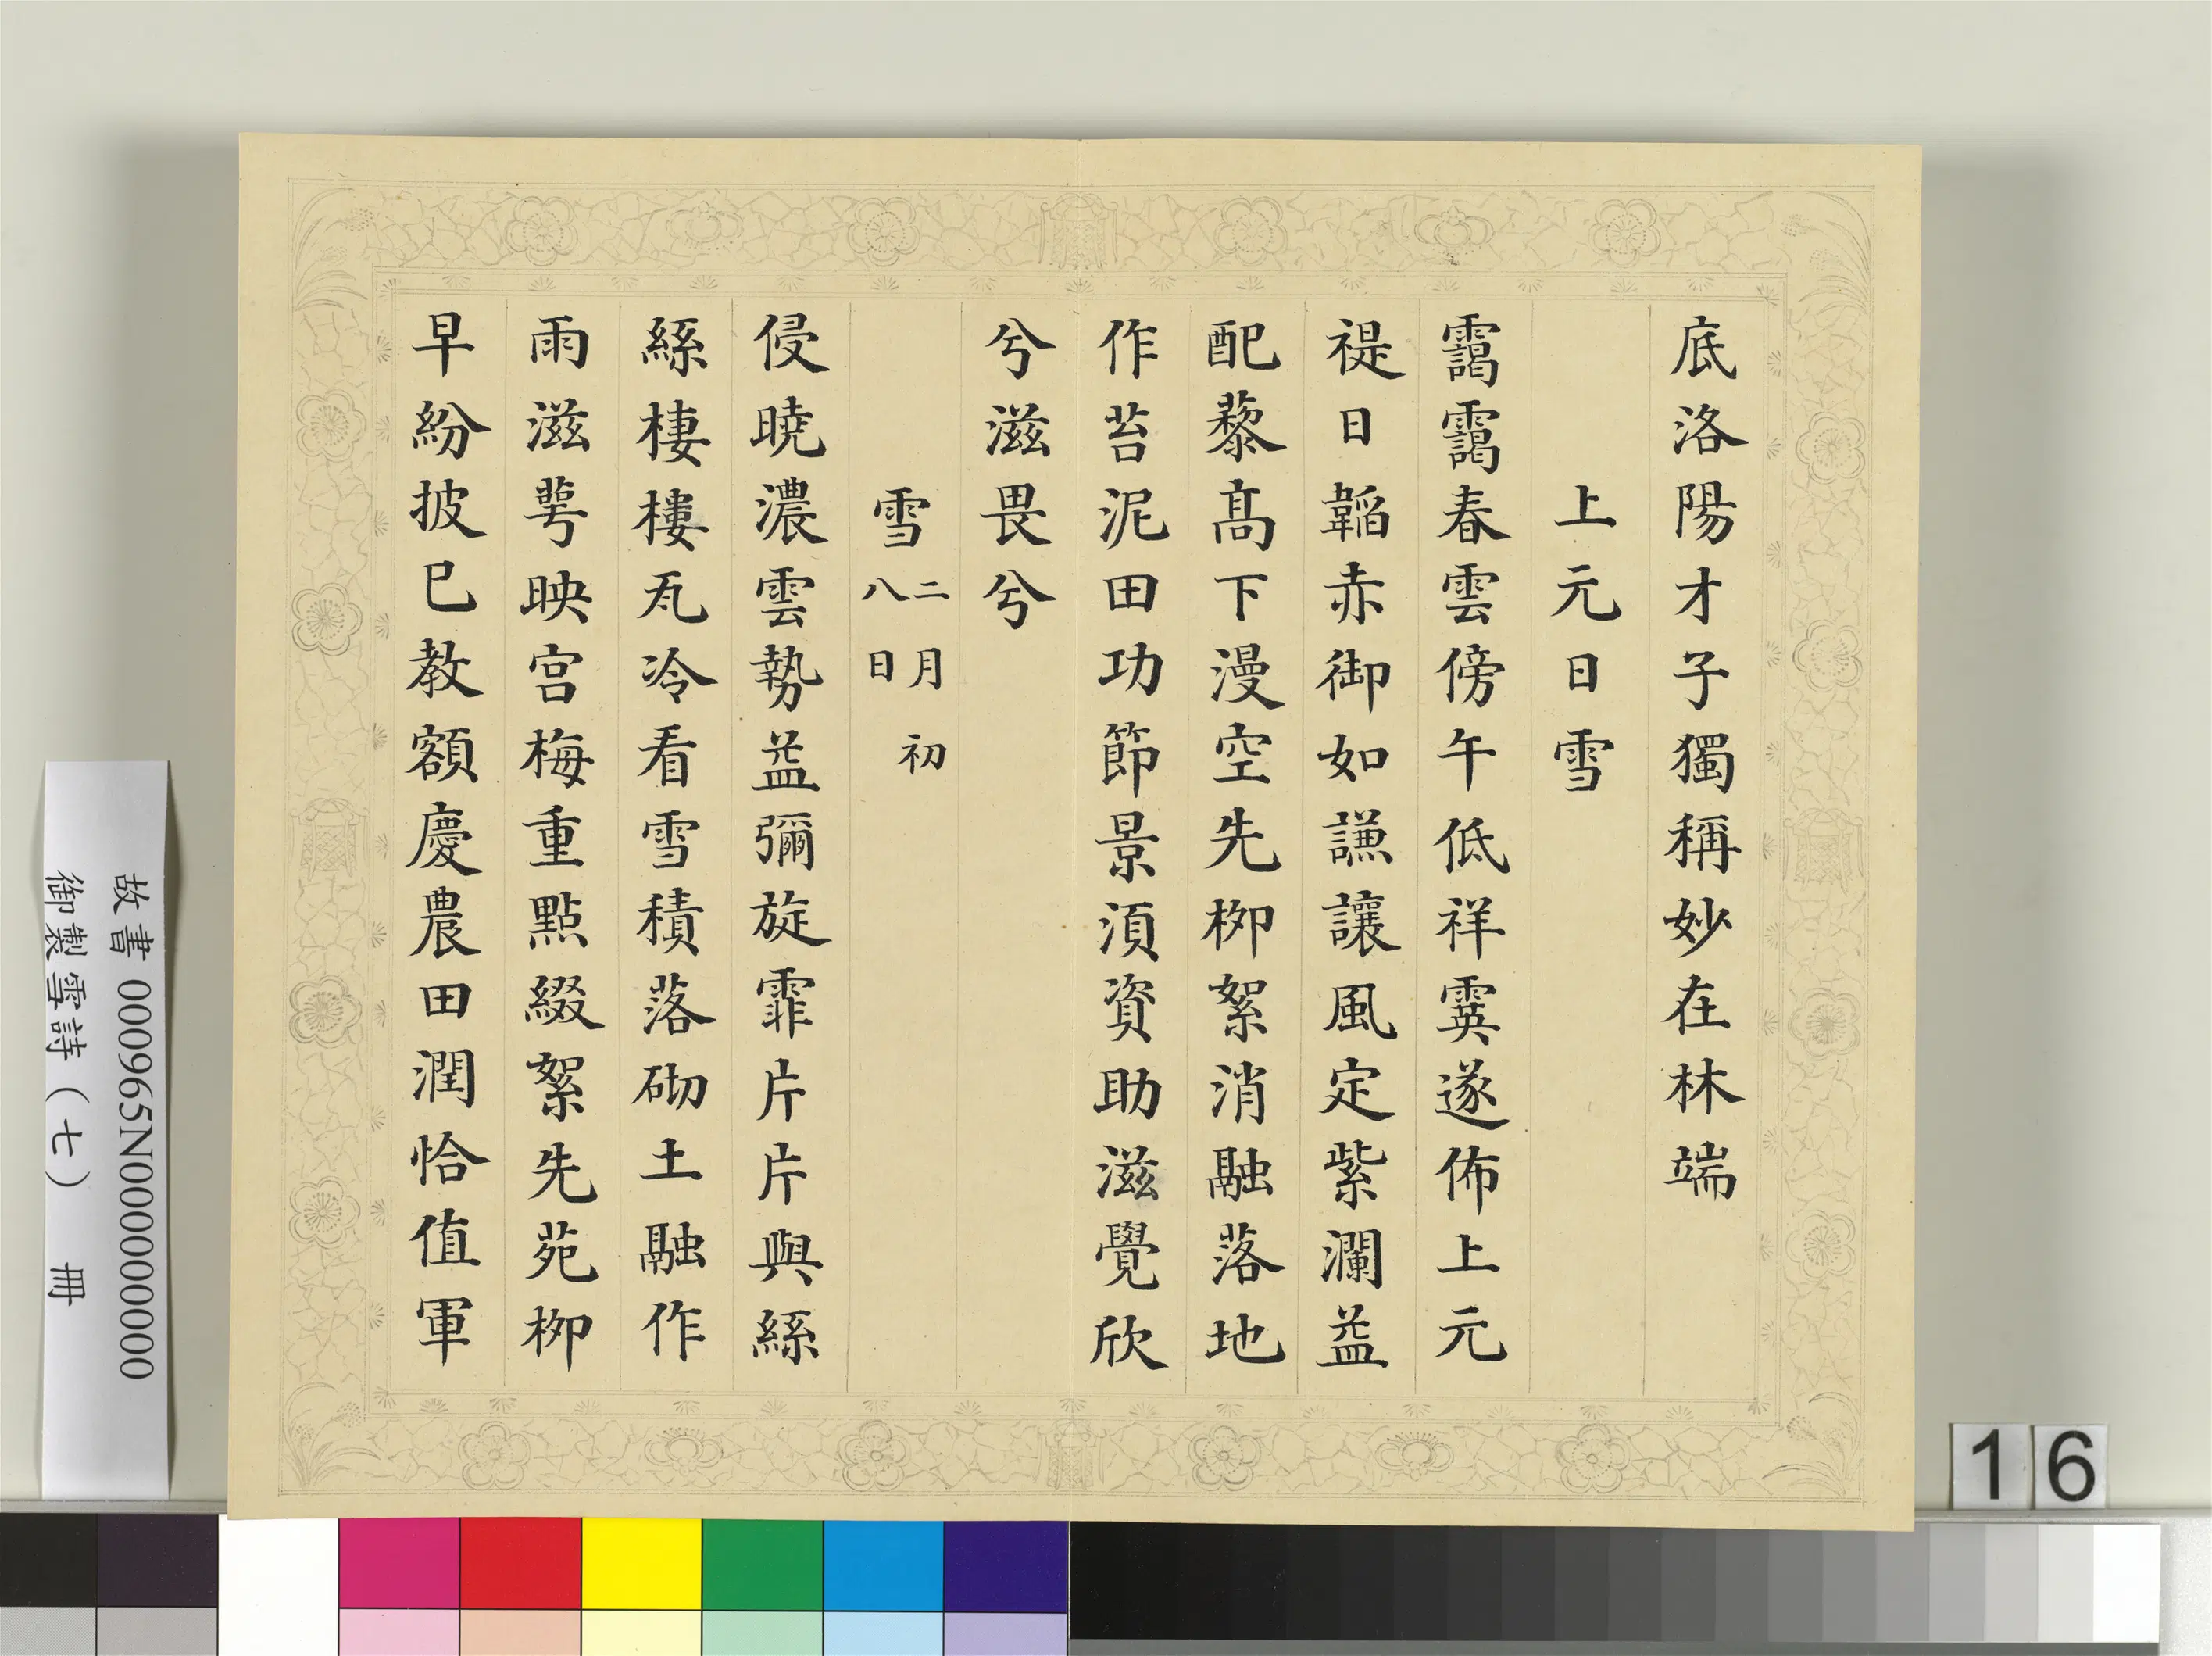 底洛陽才子獨稱妙在林端
上元日雪
靄靄春雲傍午低祥霙遂佈上元
禔日韜赤御如謙讓風定紫瀾益
配藜髙下漫空先栁絮消融落地
作苔泥田功節景湏資助滋覺欣
兮滋畏兮
雪二月初八日
侵曉濃雲勢益彌旋霏片片與絲
絲棲樓瓦冷看雪積落砌土融作
雨滋蕚映宮梅重點綴絮先苑栁
早紛披已教額慶農田潤恰值軍
故書 000965N000000000
御製雪詩（七） 冊
16